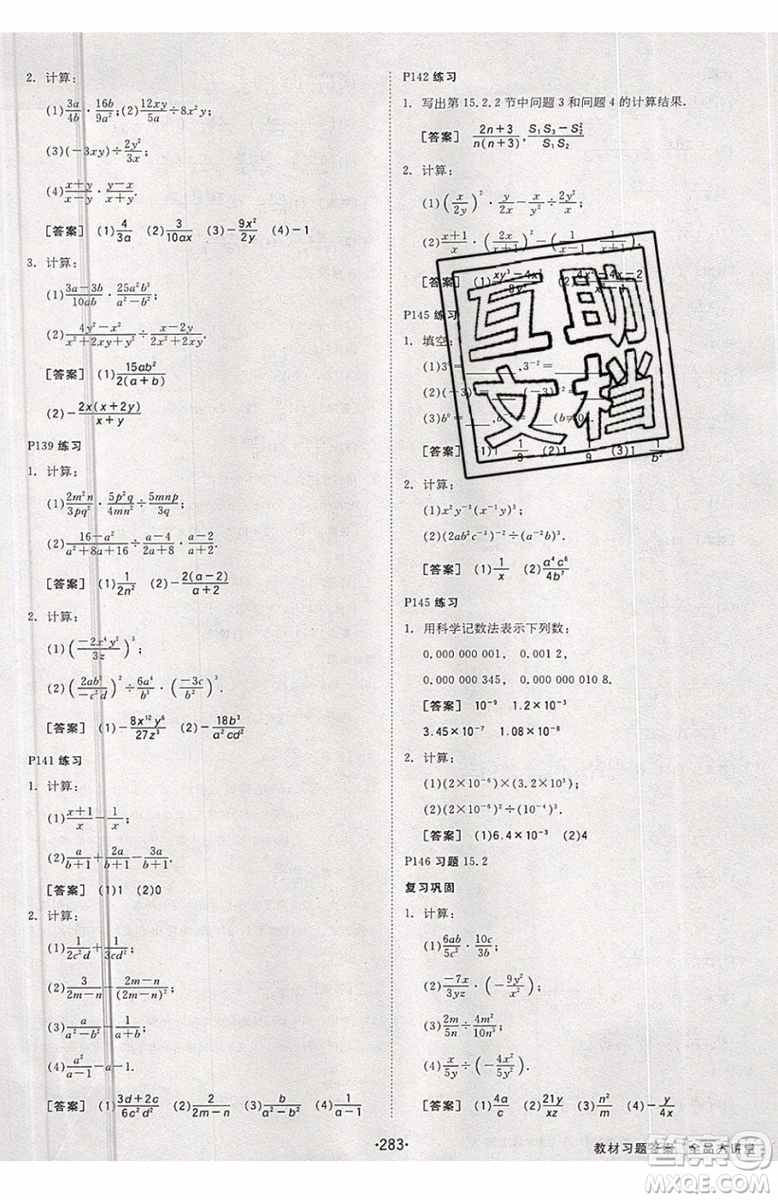 2. 计算:
(1)3a/4b · 16b/9a²;(2)12xy/5a ÷ 8x²y;
(3)(−3xy) ÷ 2y²/3x;
(4)x+y/x−y · y−x/x+y.
[答案] (1)4/3a (2)3/10ax (3)−9x²/2y (4)−1
3. 计算:
(1)3a−3b/10ab · 25a²b³/a²−b²;
(2)4y²−x²/x²+2xy+y² ÷ x−2y/2x²+2xy.
[答案] (1)15ab²/2(a+b)
(2)−2x(x+2y)/x+y
P139 练习
1. 计算:
(1)2m²n/3pq² · 5p²q/4mn² ÷ 5mnp/3q;
(2)16−a²/a²+8a+16 ÷ a−4/2a+8 · a−2/a+2.
[答案] (1)1/2n² (2)−2(a−2)/a+2
2. 计算:
(1)(−2x⁴y²/3z)³;
(2)(2ab³/−c²d)² ÷ 6a⁴/b³ · (−3c/b²)³.
[答案] (1)−8x¹²y⁶/27z³ (2)−18b³/a²cd²
P141 练习
1. 计算:
(1)x+1/x − 1/x;
(2)a/b+1 + 2a/b+1 − 3a/b+1.
[答案] (1)1 (2)0
2. 计算:
(1)1/2c²d + 1/3cd²;
(2)3/2m−n − 2m−n/(2m−n)²;
(3)a/a²−b² − 1/a+b;
(4)a²/a−1 − a − 1.
[答案] (1)3d+2c/6c²d² (2)2/2m−n (3)b/a²−b² (4)1/a−1
P142 练习
1. 写出第 15.2.2 节中问题 3 和问题 4 的计算结果.
[答案] 2n+3/n(n+3), S₁S₃−S₂²/S₁S₂
2. 计算:
(1)(x/2y)² · y/2x − x/y² ÷ 2y²/x;
(2)x+1/x · (2x/x+1)² − (1/x−1 − 1/x+1).
[答案] (1)
P145 练习
1. 填空:
[答案] (1)1 1/9 (2)1 1/9 (3)1 1/b²
2. 计算:
(1)x²y⁻³(x⁻¹y)³;
(2)(2ab²c⁻³)⁻² ÷ (a⁻²b)³.
[答案] (1)1/x (2)a⁴c⁶/4b⁷
P145 练习
1. 用科学记数法表示下列数:
0.000 000 001, 0.001 2,
0.000 000 345, 0.000 000 010 8
[答案] 1×10⁻⁹ 1.2×10⁻³
3.45×10⁻⁷ 1.08×10⁻⁸
2. 计算:
(1)(2×10⁻⁶)×(3.2×10³);
(2)(2×10⁻⁶)² ÷ (10⁻⁴)³.
[答案] (1)6.4×10⁻³ (2)4
P146 习题 15.2
复习巩固
1. 计算:
(1)6ab/5c² · 10c/3b;
(2)−7x/3yz · (−9y²/x²);
(3)2m/5n ÷ 4m²/10n³;
(4)x/5y ÷ (−4x²/y²).
[答案] (1)4a/c (2)21y/xz (3)n²/m (4)−y/20x
·283·
教材习题答案 全品大讲堂
互助
文档